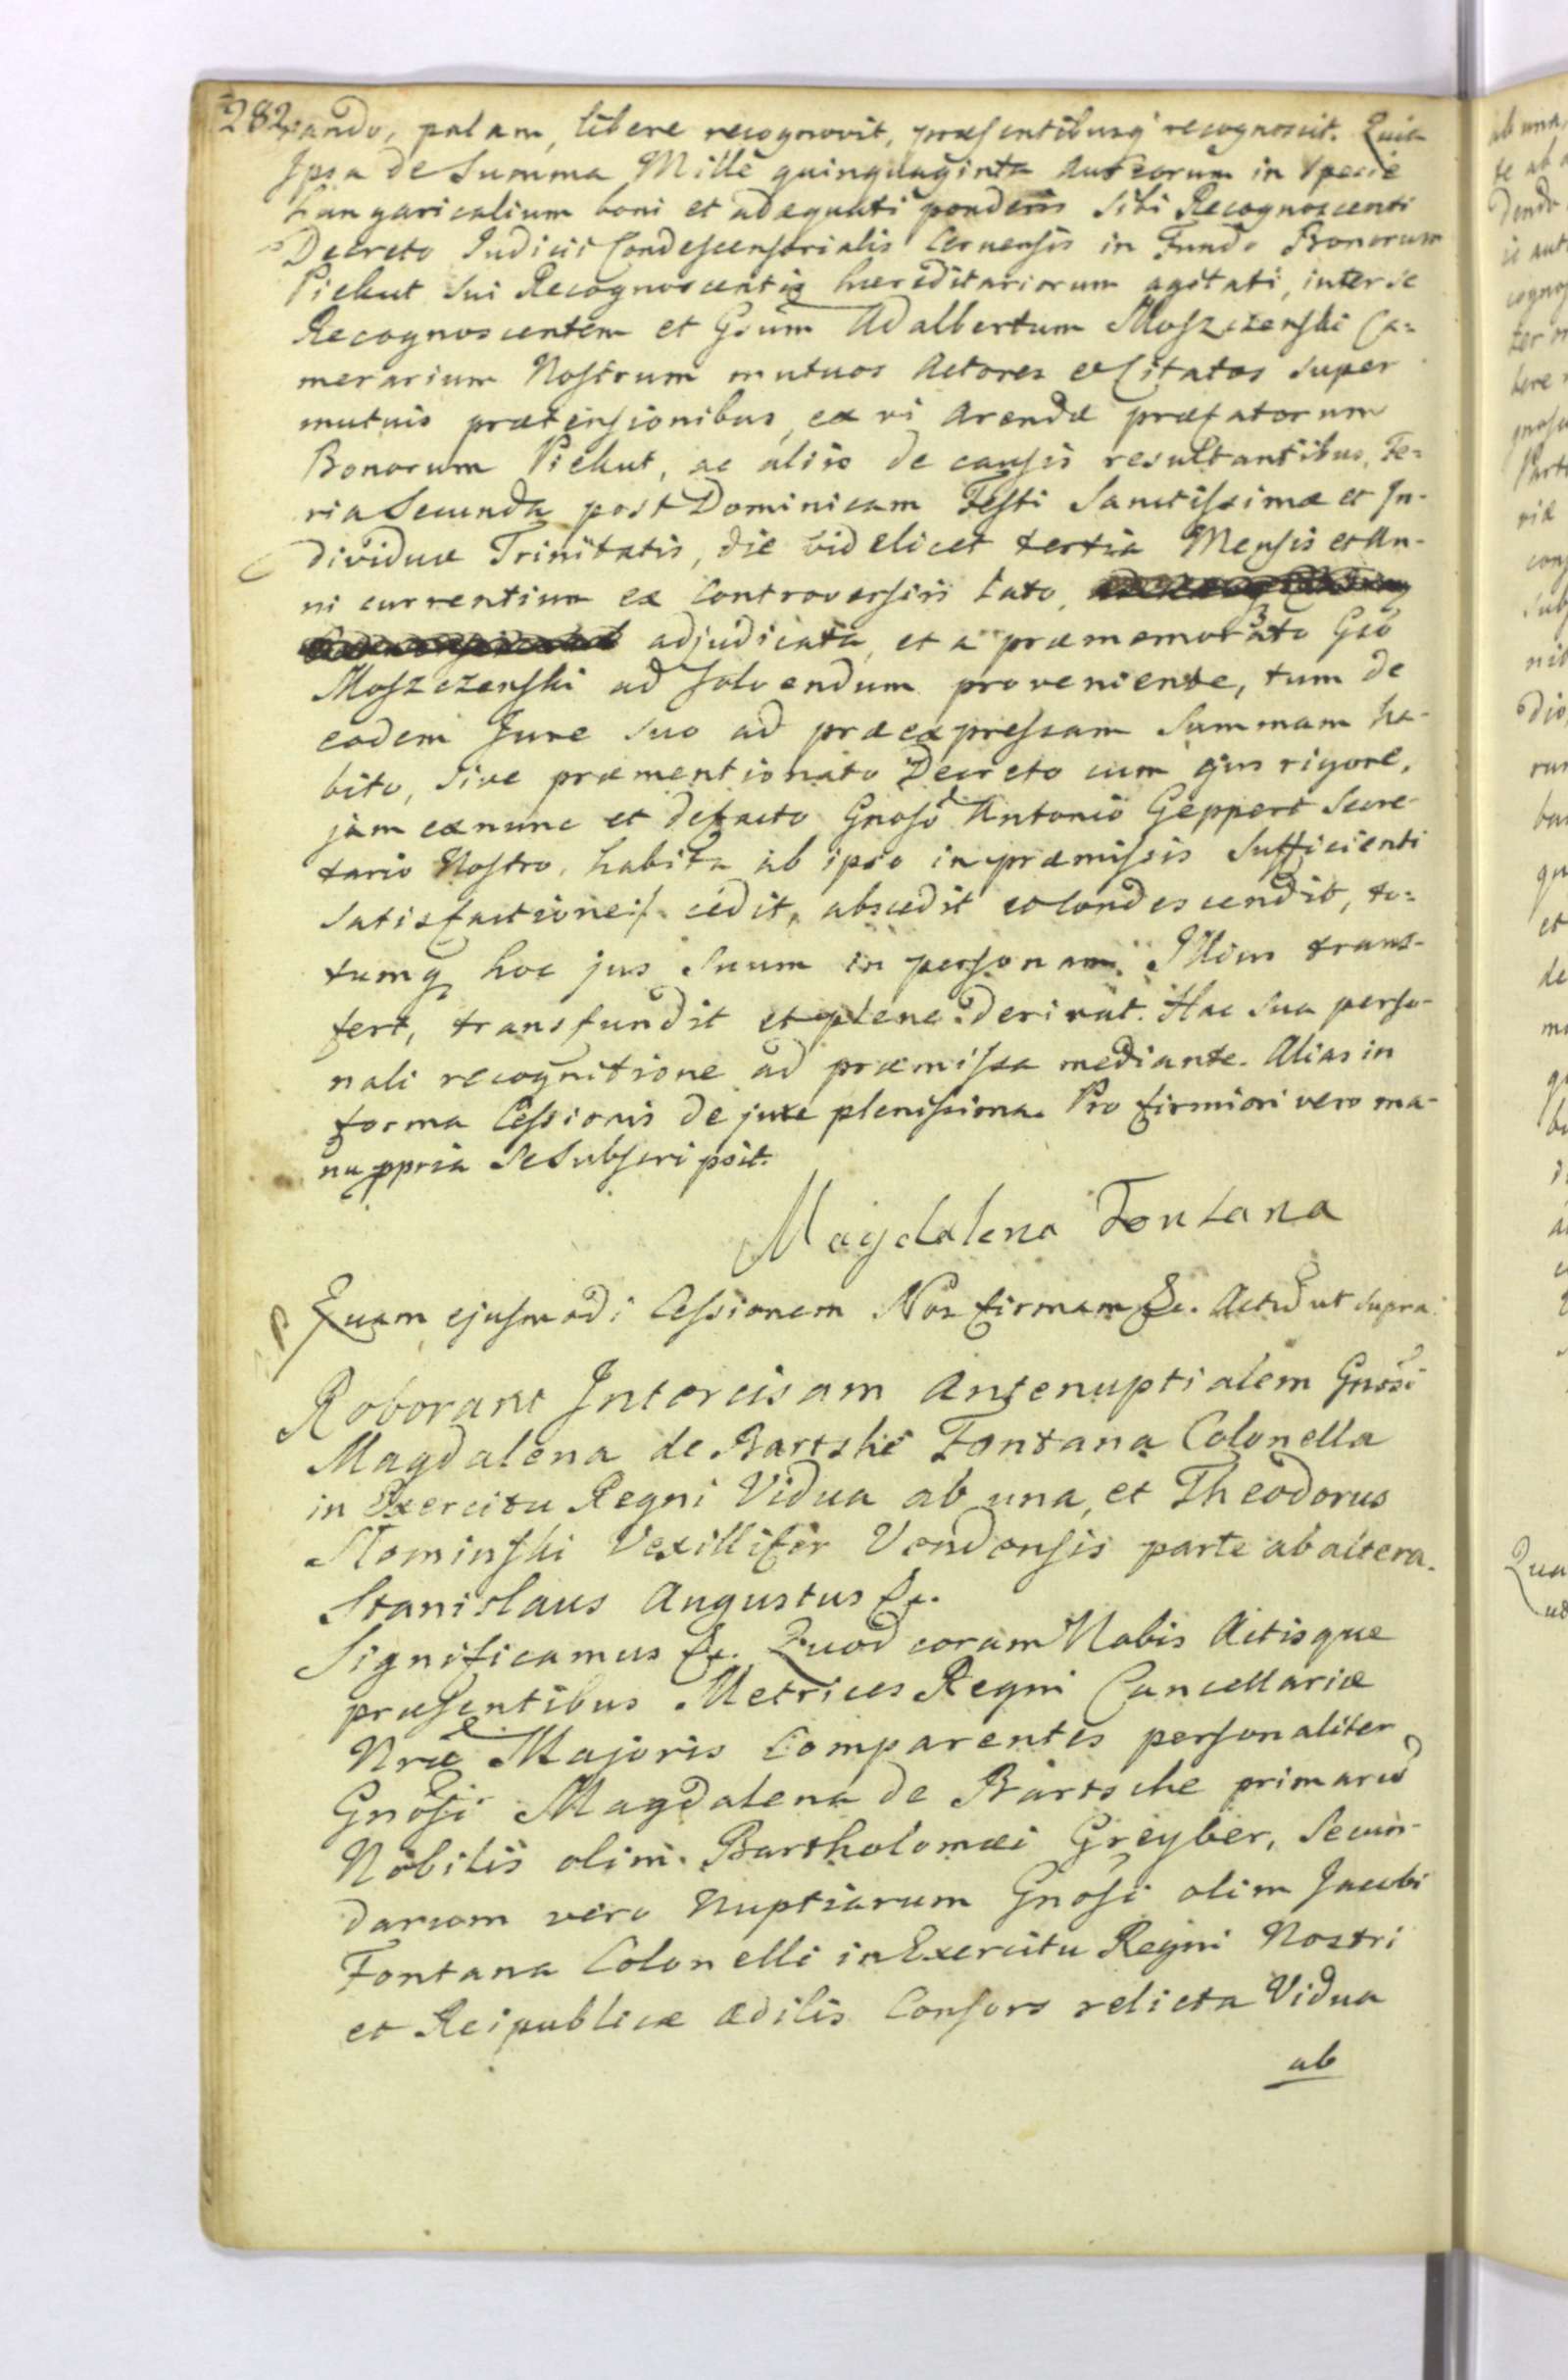 282
pando, palam, libere recognovit, præsentibusq recognoscit. Quia
Ipsa de Summa Mille quinquaginta Aureorum in Specie
hungaricalium boni et adæquati ponderis Sibi Recognoscenti
Decreto Judicii Condescensorialis Cernensis in Fundo Bonorum
Piekut Sui Recognoscentis hæreditariorum agitati, inter se
Recognoscentem et Gsum Adalbertum Moszczenski Ca=
merarium Nostrum mutuos Actores et Citatos Super
mutuis prætensionibus, ex vi Arendæ præfatorum
Bonorum Piekut, ac aliis de causis resultantibus, Fe=
ria Secunda post Dominicam Festi Sanctissimæ et In-
dividuæ Trinitatis, die videlicet tertia Mensis et An-
ni currentium ex Controversiis lato,
adjudicata, et a præmemorato Gso
Moszczenski ad solvendum proveniente, tum de
eodem Jure Suo ad præexpressam Summam ha-
bito, Sive præmentionato Decreto cum ejus rigore,
jam exnunc et defacto Gnoso Antonio Geppert Secre-
tario Nostro, habita ab ipso in præmissis Sufficienti
Satisfactione /. cedit, abscedit et condescendit, to=
tumq hoc jus Suum in personam Illius trans-
fert, transfundit et plene derivat. Hac Sua perso-
nali recognitione ad præmissa mediante. Alias in
forma Cessionis de jure plenissima. Pro firmiori vero ma-
nu ppria Se Subscripsit.
Magdalena Fontana
Quam ejusmodi Cessionem Nos firmam &c. Actu ut supra.
Roborant Intercisam Antenuptialem Gnosi
Magdalena de Bartshe Fontana Colonella
in Exercitu Regni Vidua ab una, et Theodorus
Slominski Vexillifer Vendensis parte ab altera.
Stanislaus Augustus &c.
Significamus &c. Quod coram Nobis Actisque
præsentibus Metrices Regni Cancellariæ
Nræ Majoris Comparentes personaliter
Gnosi Magdalena de Bartsche primario
Nobilis olim Bartholomæi Greyber, Secun-
dariom vero Nuptiarum Gnosi olim Jacobi
Fontana Colonelli in Exercitu Regni Nostri
et Reipublicæ Ædilis Consors relicta Vidua
ab